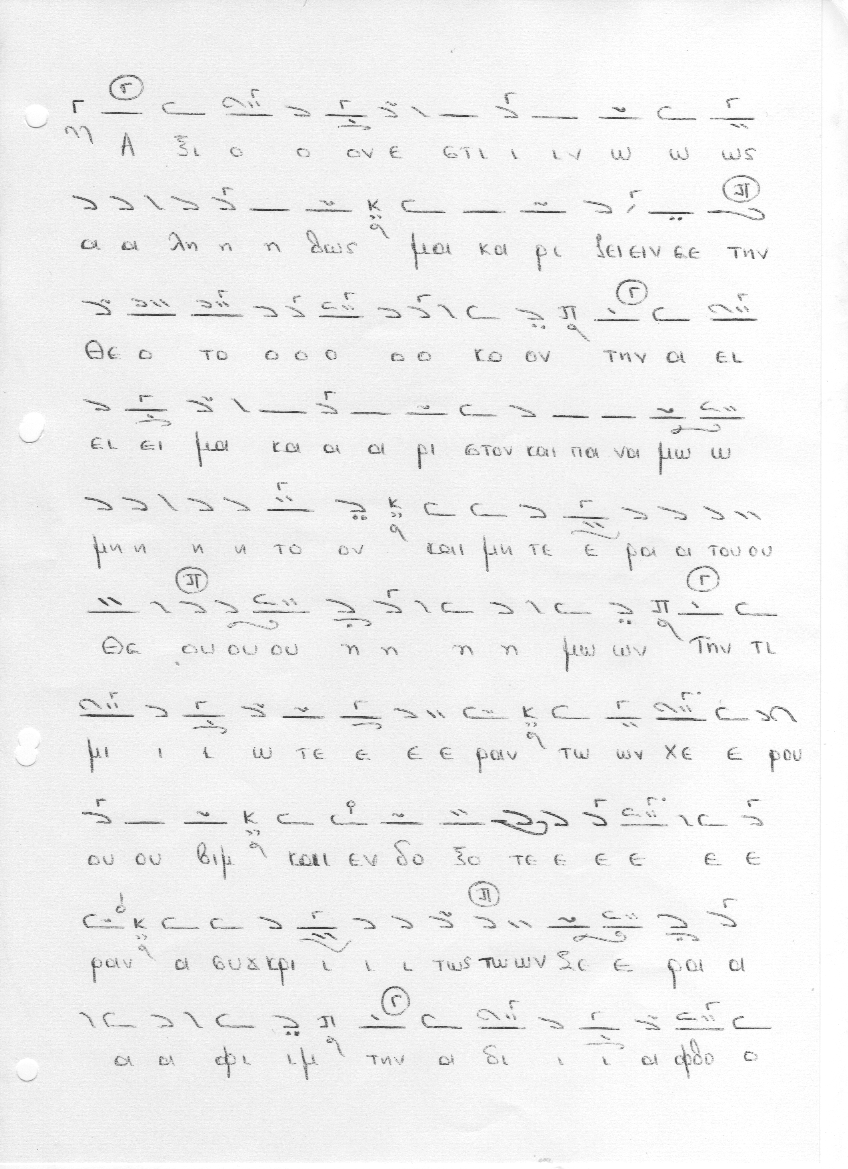 Α ξι ο ο ον ε στι ι ιν ω ω ως
α α λη η η θως μα κα ρι ζει ειν σε την
Θε ο το ο ο ο ο ο κο ον την α ει
ει ει μα κα α α ρι στον και πα να μω ω
μη η η η το ον και μη τε ε ρα α του ου
Θε ου ου ου η η η η μω ων Την τι
μι ι ι ω τε ε ε ε ραν τω ων χε ε ρου
ου ου βιμ και εν δο ξο τε ε ε ε ε ε
ραν α συγκρι ι ι ι τως τω ων Σε ε ρα α
α α φι ιμ την α δι ι ι α φθο ο